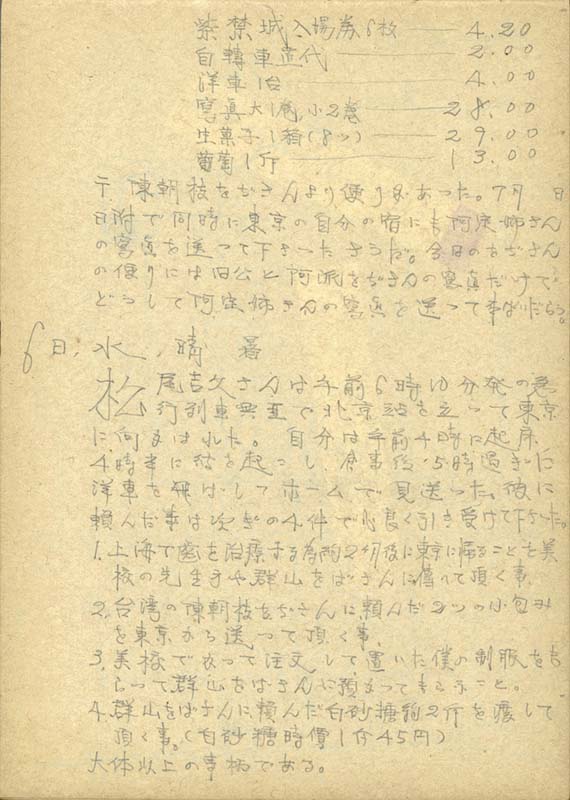 紫禁城入場券6枚 — 4.20
自轉車壱代 — 2.00
洋車1台 — 4.00
寫真大1 小2巻 — 28.00
生菓子1箱(8ツ) — 29.00
葡萄1斤 — 13.00
陳朝枝をぢさんより便りがあった。7月 日
日附で同時に東京の自分の宿にも阿定姉さん
の寫真を送って下さったさうだ。今日のをぢさん
の便りには旧公と阿派をぢさんの寫真だけで
どうして阿定姉さんの寫真を送って来ないだらう。
6日、水、晴 暑
松尾吉久さんは午前6時10分発の急
行列車興亜で北京站を立って東京
に向はれた。自分は午前4時に起床
4時半に彼を起こし、食事後5時過ぎに
洋車を飛ばしてホームで見送った。彼に
頼んだ事は次ぎの4件で心良く引き受けて下さった。
1. 上海で 治療する為 2 後に東京に帰ることを美
校の先生 や群山をばさんに傳へて頂く事.
2. 台湾の陳朝枝をぢさんに頼んだ2ツの小包み
を東京から送って頂く事.
3. 美校で 注文して置いた僕の制服を
らって群山をばさんに預かってもらふこと。
4. 群山をばさんに頼んだ白砂糖約2斤を渡して
頂く事。(白砂糖時價1斤45円)
大体以上の事柄である。